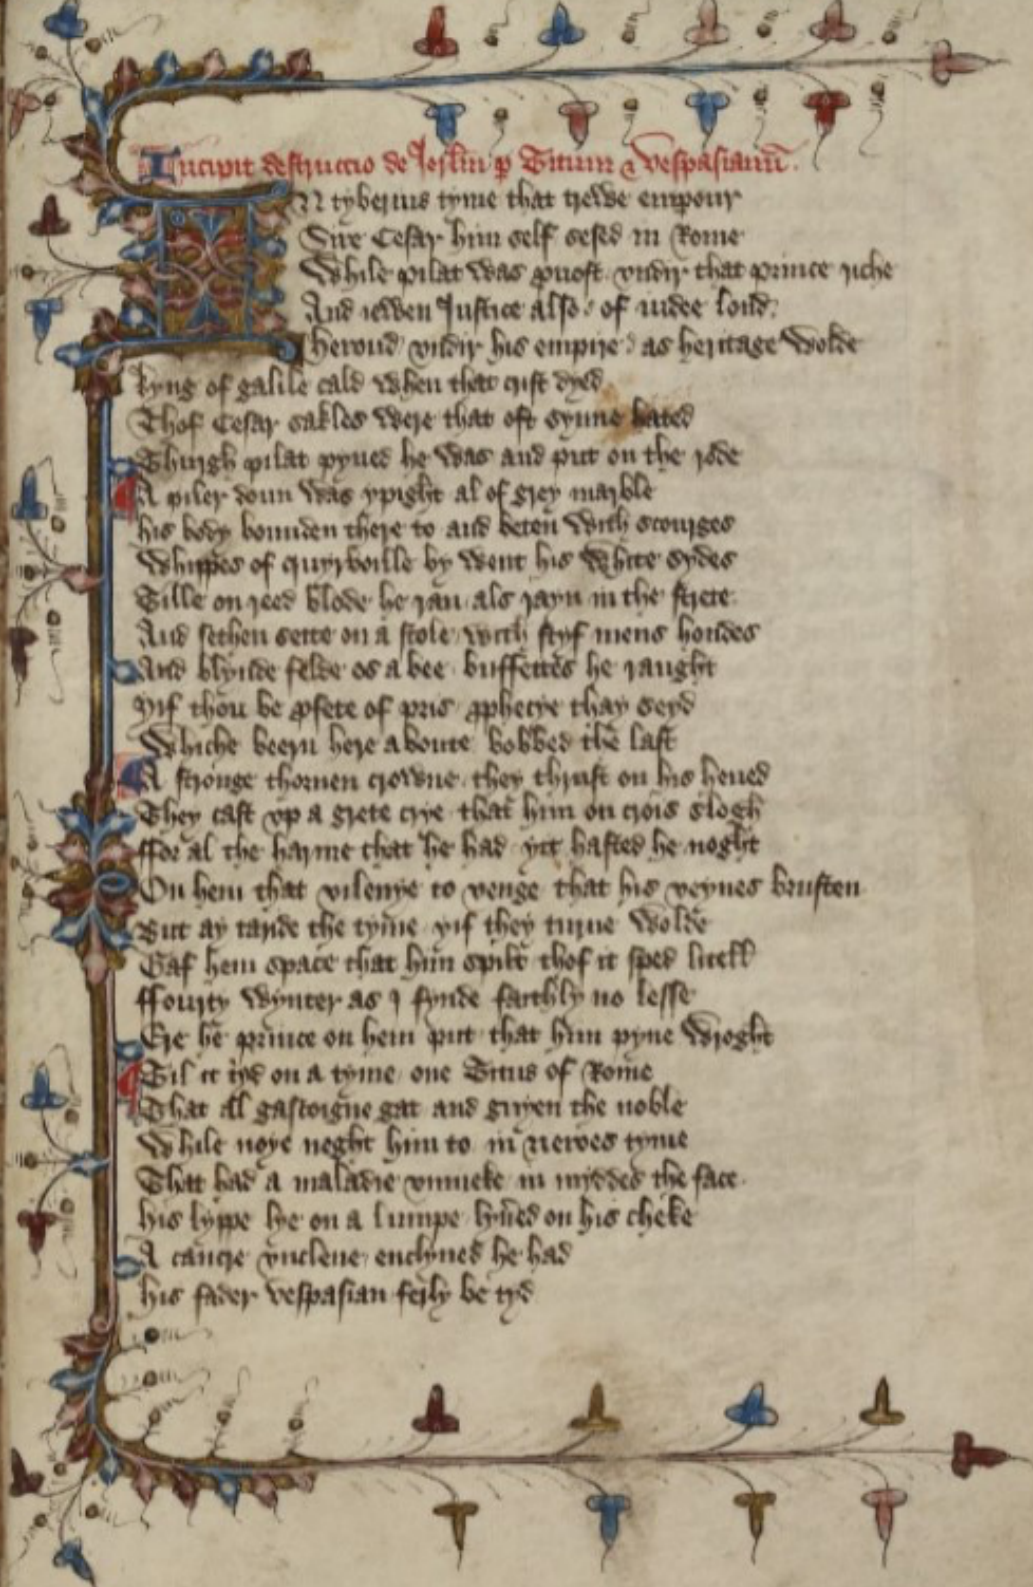 Incipit destruccio de Jerslm p Titum & vespasianu.
In tyberius tyme that trewe empour
Sire Cesar him self sesed in Rome
While pilat was puost vndir that prince riche
And iewen Justice also of iudee lond
Heroud vndir his empire as heritage wolde
kyng of galile cald when that crist dyed
Thof Cesar sakles were that oft synne hated
Thurgh pilat pyned he was and put on the rode
A piler doun was ypight al of grey marble
his body bounden there to and beten with scourges
Whippes of quyrboille by went his white sydes
Tille on reed blode he ran als rayn in the strete
And sethen sette on a stole with styf mens hondes
And blynde felde os a bee buffettes he raught
yif thou be pfete of pris pphecye thay seyd
Whiche beern here aboute bobbed the last
A stronge thornen crowne they thrust on his heued
They cast vp a grete crye that him on crois slogh
ffor al the harme that he had yit hasted he noght
On hem that vilenye to venge that his veynes brusten
But ay taride the tyme yif they turne wolde
Gaf hem space that him spilt thof it sped litell
ffourty wynter as I fynde faithly no lesse
Ere he prince on hem put that him pyne wroght
Til it tyd on a tyme one Titus of Rome
That al gascoigne gat and gyyen the noble
While noye neght him to in neroes tyme
That had a maladie vnmeke in myddes the face
his lyppe lye on a lumpe lyued on his cheke
A cancre vnclene enclyned he had
his fader vespasian ferly be tyd